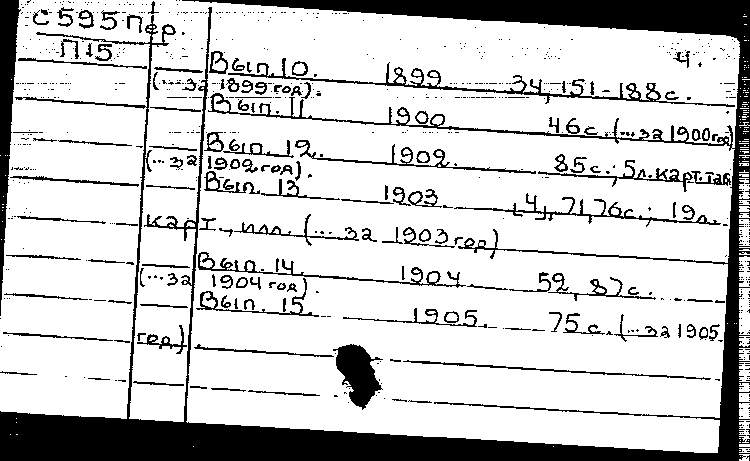 С595 Пер.
П15
4.
Вып. 10. 1899 34, 151-188 с.
(... за 1899 год).
Вып. 11. 1900. 46 с. (... за 1900 год)
Вып. 12. 1902. 85 с.; 5 л. карт. таб
(... за 1902 год).
Вып. 13 1903. [4], 71, 76 с.; 19 л.
карт., илл. (... за 1903 год)
Вып. 14. 1904. 52, 87 с.
(... за 1904 год).
Вып. 15. 1905. 75 с. (... за 1905
год).